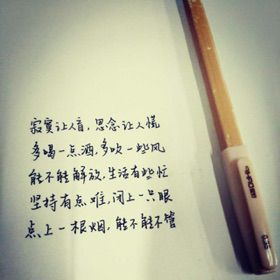 寂寞让人盲，思念让人慌
多喝一点酒，多吹一些风
能不能解放，生活有些忙
坚持有点难，闭上一只眼
点上一根烟，能不能不管